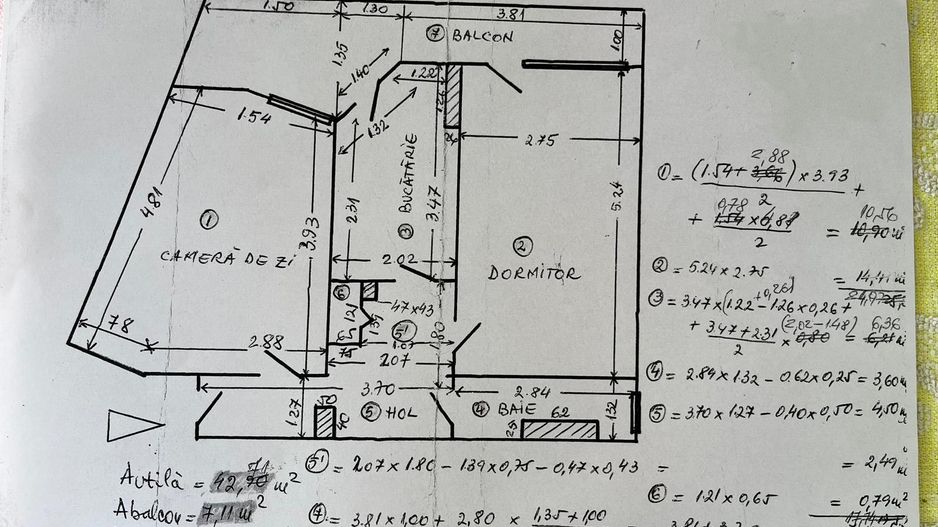 1.50
1.30
3.81
⑦ BALCON
1.35
140
1.00
1.22
1.26
26
1.54
1.32
2.75
4.81
① CAMERĂ DE ZI
3.93
2.31
③ BUCĂTĂRIE
3.47
5.24
② DORMITOR
2.02
⑥
47×43
121
135
5'
1.80
75
1.07
78
2.88
207
3.70
2.84
1.27
50
40
⑤ HOL
④ BAIE
62
25
1.32
① = (1.54 + 2,88) × 3.93 +
2
+ 0,78 × 0,88
2
= 10,56
② = 5.24 × 2.75 = 14,41 m
③ = 3.47 × (1.22 + 0,26) - 1.26 × 0.26 +
+ 3.47 + 2.31 × (2,02 - 1.48) = 6,36
2
④ = 2.84 × 1.32 - 0.62 × 0.25 = 3,60 m
⑤ = 3.70 × 1.27 - 0.40 × 0,50 = 4,50 m
5' = 2.07 × 1.80 - 1.39 × 0,75 - 0,47 × 0,43 = = 2,49 m
⑥ = 1.21 × 0,65 = 0,79 m²
Autilă = 42,71 m²
Abalcon = 7,11 m²
⑦ = 3.81 × 1,00 + 2,80 × 1,35 + 1,00